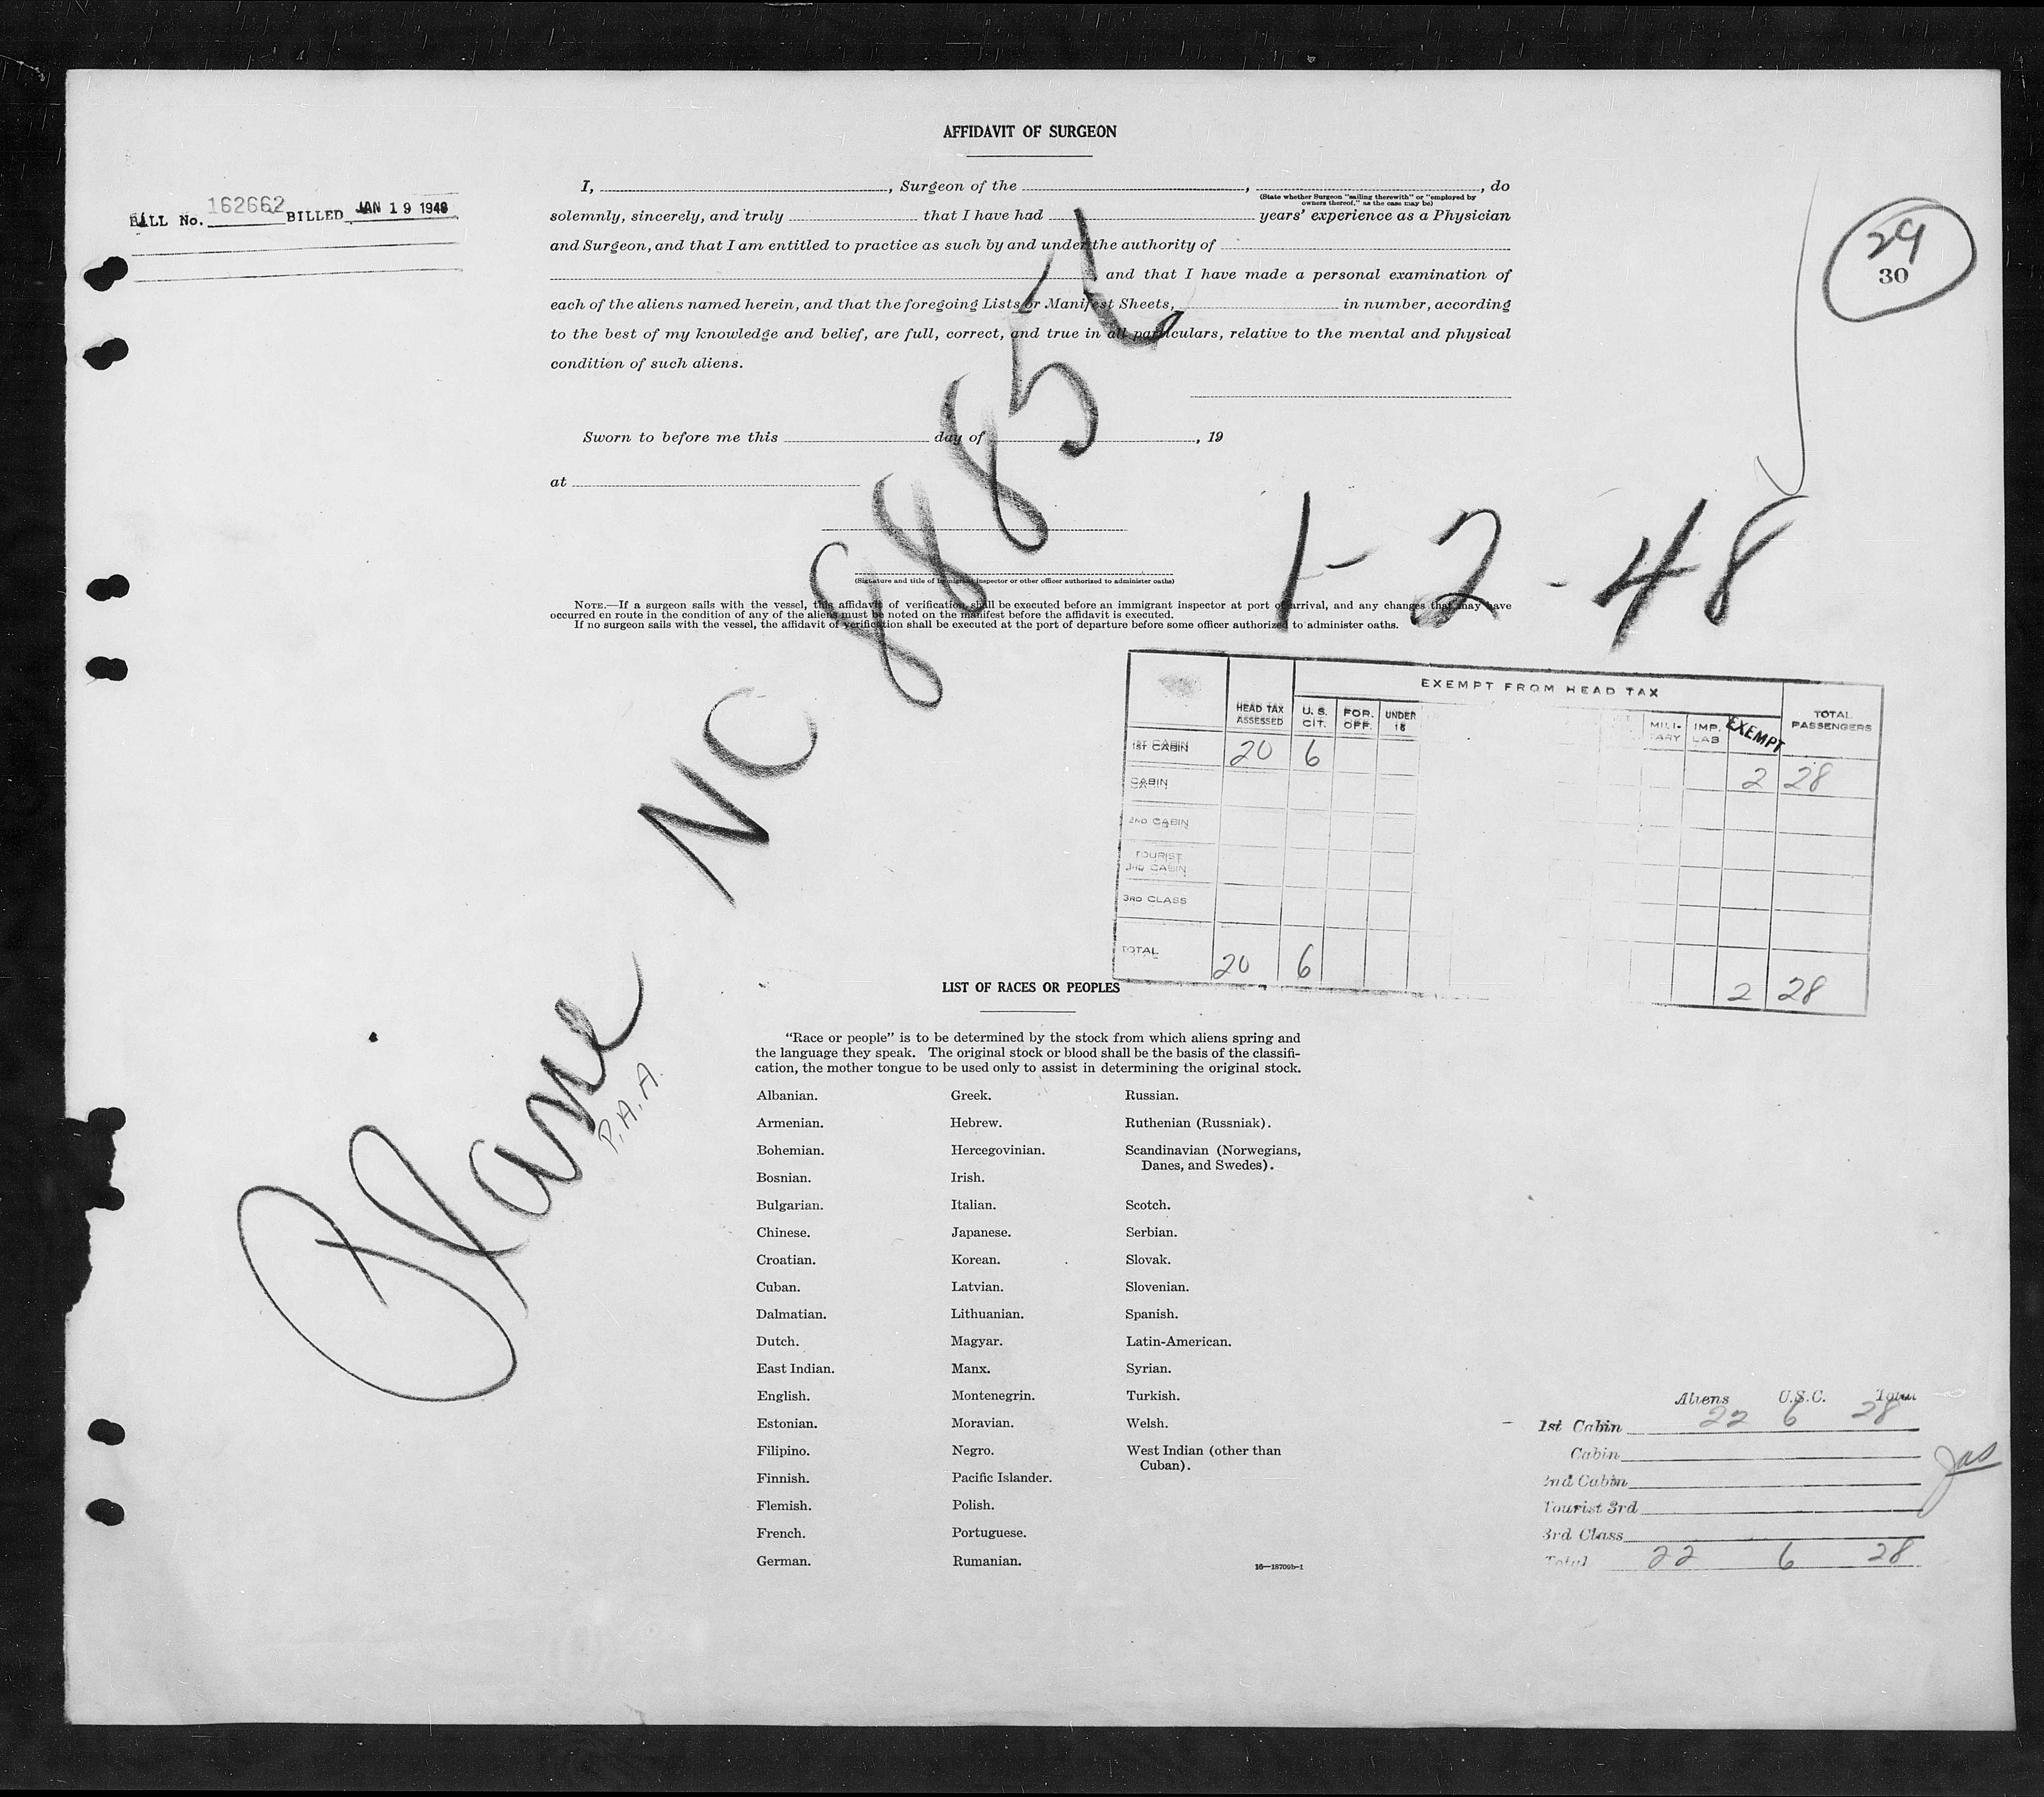 AFFIDAVIT OF SURGEON
BILL No. 162662 BILLED JAN 19 1948
29
30
I, , Surgeon of the , , do
(State whether Surgeon "sailing therewith" or "employed by
owners thereof," as the case may be)
solemnly, sincerely, and truly that I have had years' experience as a Physician
and Surgeon, and that I am entitled to practice as such by and under the authority of
and that I have made a personal examination of
each of the aliens named herein, and that the foregoing Lists or Manifest Sheets, in number, according
to the best of my knowledge and belief, are full, correct, and true in all particulars, relative to the mental and physical
condition of such aliens.
Sworn to before me this day of , 19
at
(Signature and title of immigrant inspector or other officer authorized to administer oaths)
NOTE.—If a surgeon sails with the vessel, this affidavit of verification shall be executed before an immigrant inspector at port of arrival, and any changes that may have
occurred en route in the condition of any of the aliens must be noted on the manifest before the affidavit is executed.
If no surgeon sails with the vessel, the affidavit of verification shall be executed at the port of departure before some officer authorized to administer oaths.
1-2-48
Plane NC 8885
P.A.A.
EXEMPT FROM HEAD TAX
HEAD TAX ASSESSED U. S. CIT. FOR. OFF. UNDER 16 MILI- TARY IMP. LAB EXEMPT TOTAL PASSENGERS
1ST CABIN 20 6
CABIN 2 28
2ND CABIN
TOURIST
3RD CABIN
3RD CLASS
TOTAL 20 6 2 28
LIST OF RACES OR PEOPLES
"Race or people" is to be determined by the stock from which aliens spring and
the language they speak. The original stock or blood shall be the basis of the classifi-
cation, the mother tongue to be used only to assist in determining the original stock.
Albanian. Greek. Russian.
Armenian. Hebrew. Ruthenian (Russniak).
Bohemian. Hercegovinian. Scandinavian (Norwegians,
Danes, and Swedes).
Bosnian. Irish.
Bulgarian. Italian. Scotch.
Chinese. Japanese. Serbian.
Croatian. Korean. Slovak.
Cuban. Latvian. Slovenian.
Dalmatian. Lithuanian. Spanish.
Dutch. Magyar. Latin-American.
East Indian. Manx. Syrian.
English. Montenegrin. Turkish.
Estonian. Moravian. Welsh.
Filipino. Negro. West Indian (other than
Cuban).
Finnish. Pacific Islander.
Flemish. Polish.
French. Portuguese.
German. Rumanian.
16—18709b-1
Aliens U.S.C. Total
1st Cabin 22 6 28
Cabin
2nd Cabin
Tourist 3rd
3rd Class
Total 22 6 28